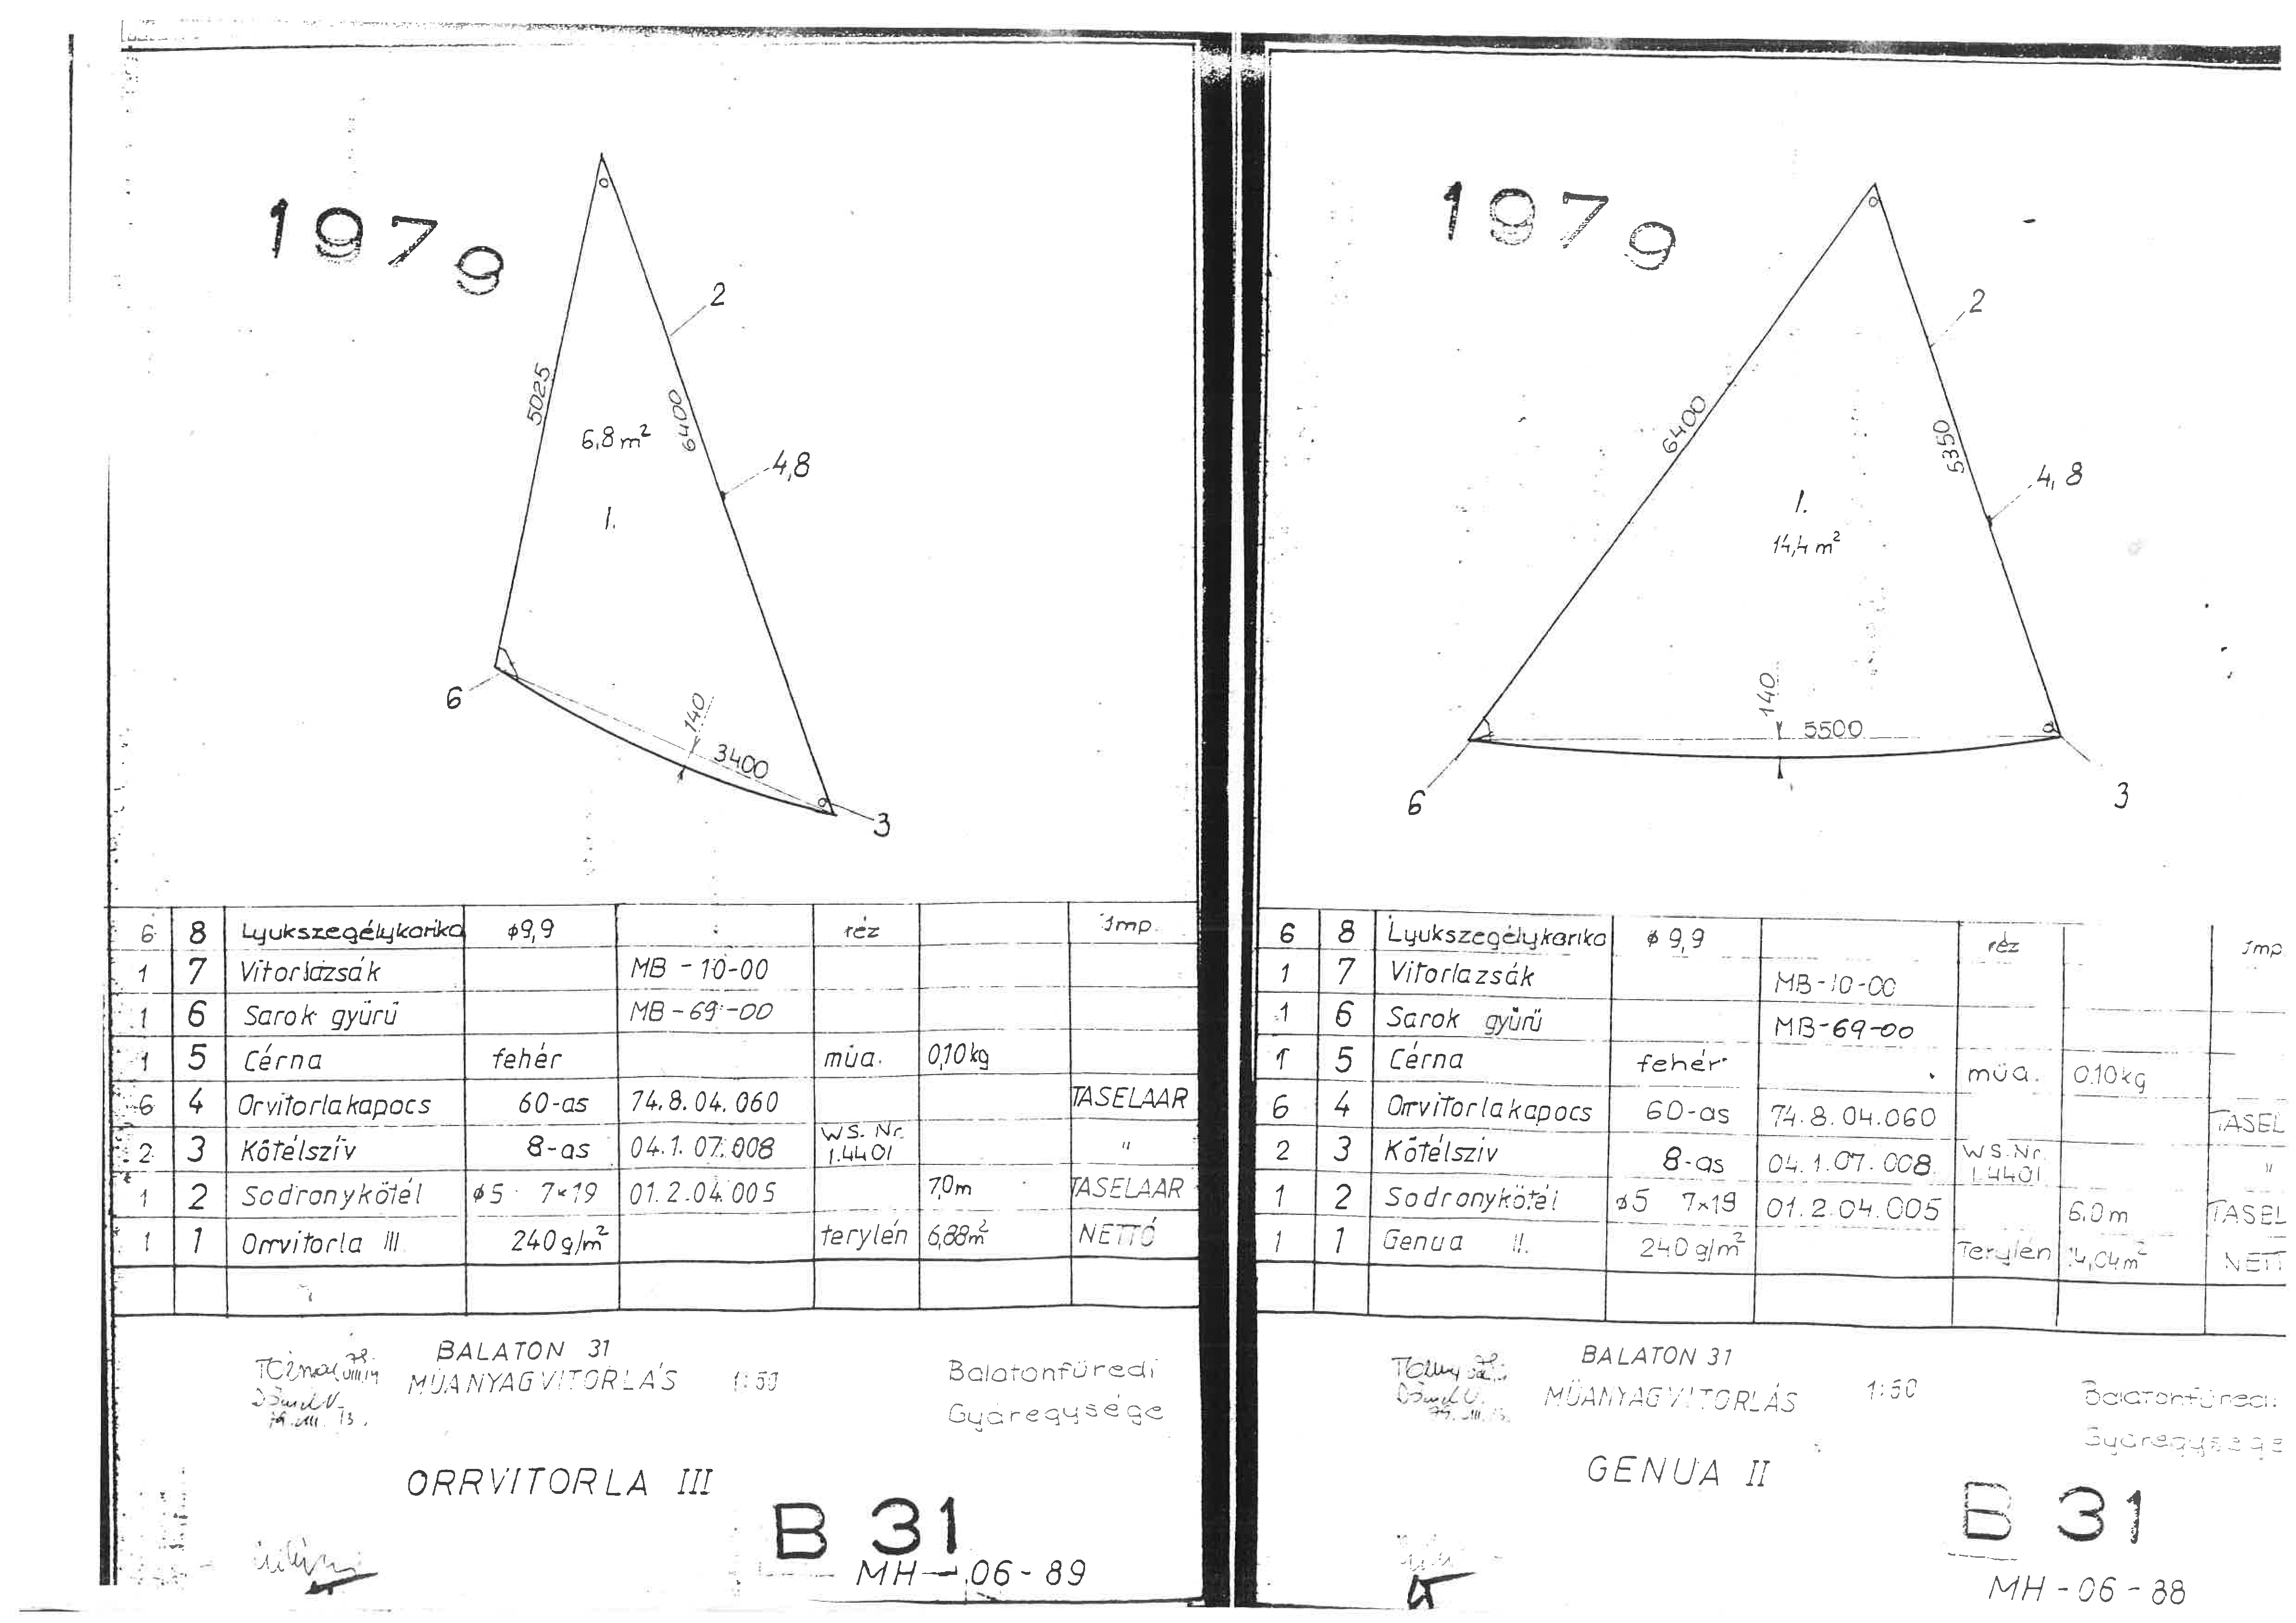 1979
2
5025
6400
6,8 m²
4,8
1.
6
140
3400
3
6 8 Lyukszegélykarika ϕ9,9 réz Imp.
1 7 Vitorlázsák MB-10-00
1 6 Sarok gyűrű MB-69-00
1 5 Cérna fehér műa. 0,10 kg
6 4 Orvitorlakapocs 60-as 74.8.04.060 TASELAAR
2 3 Kötélszív 8-as 04.1.07.008 WS.Nr. 1.4401 "
1 2 Sodronykötél ϕ5 7×19 01.2.04.005 7,0 m TASELAAR
1 1 Orrvitorla III. 240 g/m² terylén 6,88 m² NETTÓ
BALATON 31
MŰANYAGVITORLÁS 1:50
Balatonfüredi
Gyáregysége
ORRVITORLA III
B 31
MH-06-89
1979
2
6400
5350
4,8
1.
14,4 m²
140
5500
6
3
6 8 Lyukszegélykarika ϕ9,9 réz Imp
1 7 Vitorlazsák MB-10-00
1 6 Sarok gyűrű MB-69-00
1 5 Cérna fehér műa. 0,10 kg
6 4 Orrvitorlakapocs 60-as 74.8.04.060 TASEL
2 3 Kötélszív 8-as 04.1.07.008 WS.Nr. 1.4401 "
1 2 Sodronykötél ϕ5 7×19 01.2.04.005 6,0 m TASEL
1 1 Genua II. 240 g/m² Terylén 14,04 m² NETT
BALATON 31
MŰANYAGVITORLÁS 1:50
Balatonfüredi
Gyáregysége
GENUA II
B 31
MH-06-88